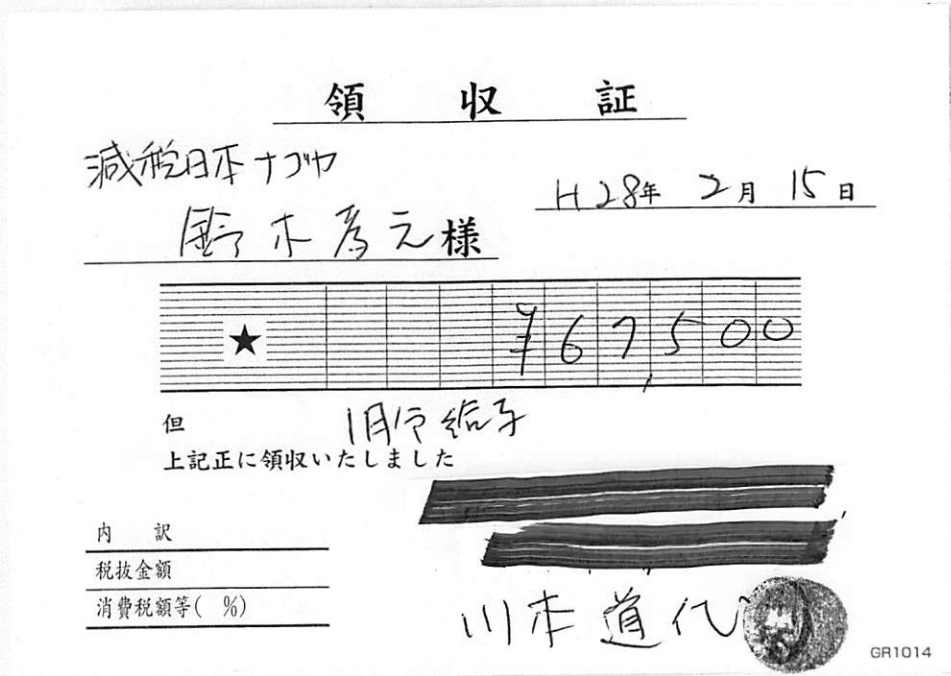 領収証
減税日本ナゴヤ
H28年 2月 15日
鈴木孝之様
★ ¥67,500
但 1月分給与
上記正に領収いたしました
内訳
税抜金額
消費税額等( %)
川本道代
GR1014